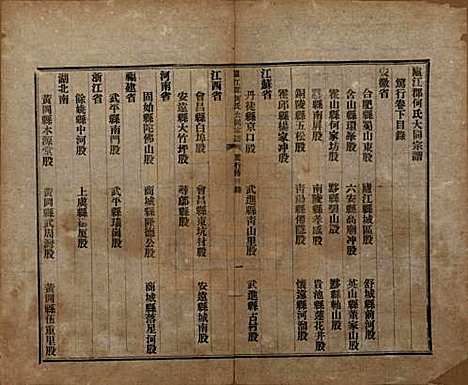 廬江郡何氏大同宗譜
篤行卷下目錄
安徽省
合肥縣蜀山東股 廬江縣城區股 舒城縣前河股
含山縣環峯股 六安縣高廟冲股 英山縣董家山股
霍山縣何家坊股 黟縣碧山股 黟縣軸山股
縣南屏股 南陵縣孝感股 貴池縣蓮花井股
銅陵縣五松股 青陽縣佛股 懷遠縣河溜股
霍邱縣楊家冲股
江蘇省
丹徒縣京口股 武進縣青山里股 武進縣古村股
廬江郡何氏大同宗譜 一
江西省
會昌縣白埠股 會昌縣東坑村股 安遠縣城南股
安遠縣大竹坪股 尋鄔縣股
河南省
固始縣陀佛山股 商城縣隆德公股 商城縣落星河股
福建省
武平縣南門股 武平縣瑞湖股
浙江省
餘姚縣中河股 上虞縣崧厦股
湖北南
黃岡縣木源堂股 黃岡縣武周灣股 黃岡縣伍重里股